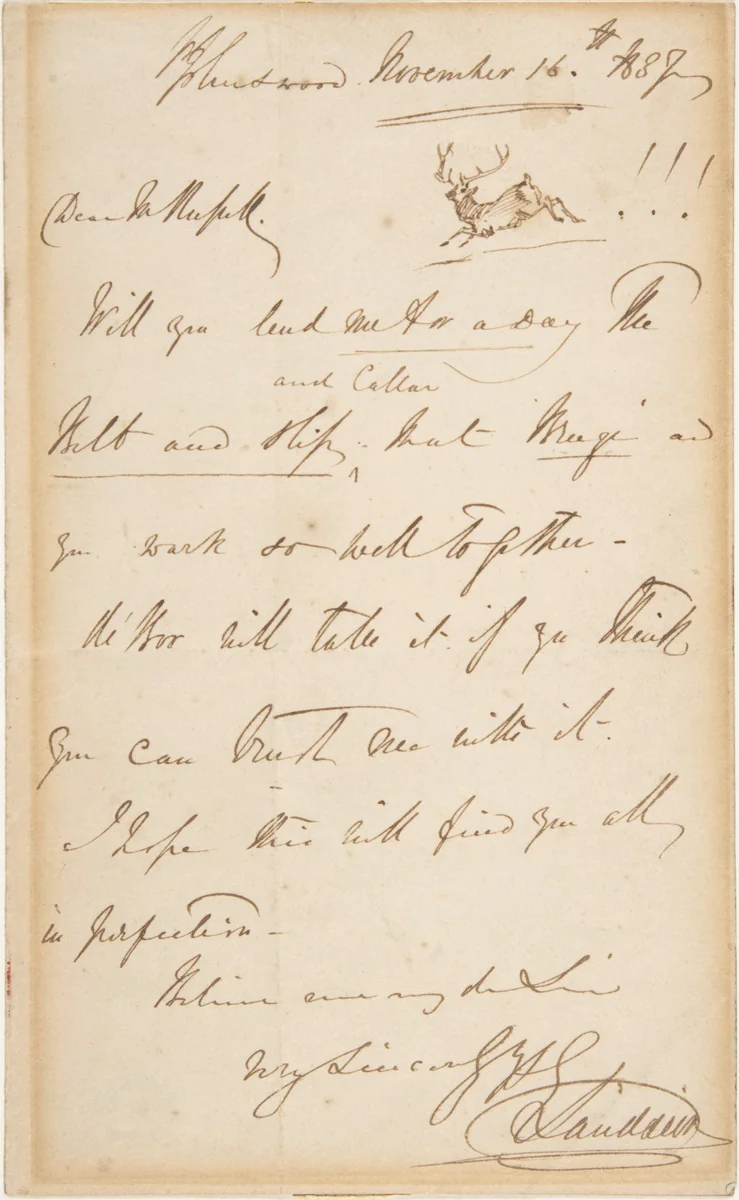 St Johns wood November 16.th 1837
Dear Mr Russell. !!!
Will you lend me for a Day The
and Collar
Belt and slip, that and
you work so well together -
will take it if you Think
you can trust me with it.
I hope this will find you all
in perfection -
Believe me my dr Sir
very Sincerely Yrs
E Landseer